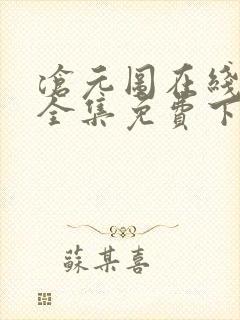 滄元圖在綫
全集免費下
蘇某喜